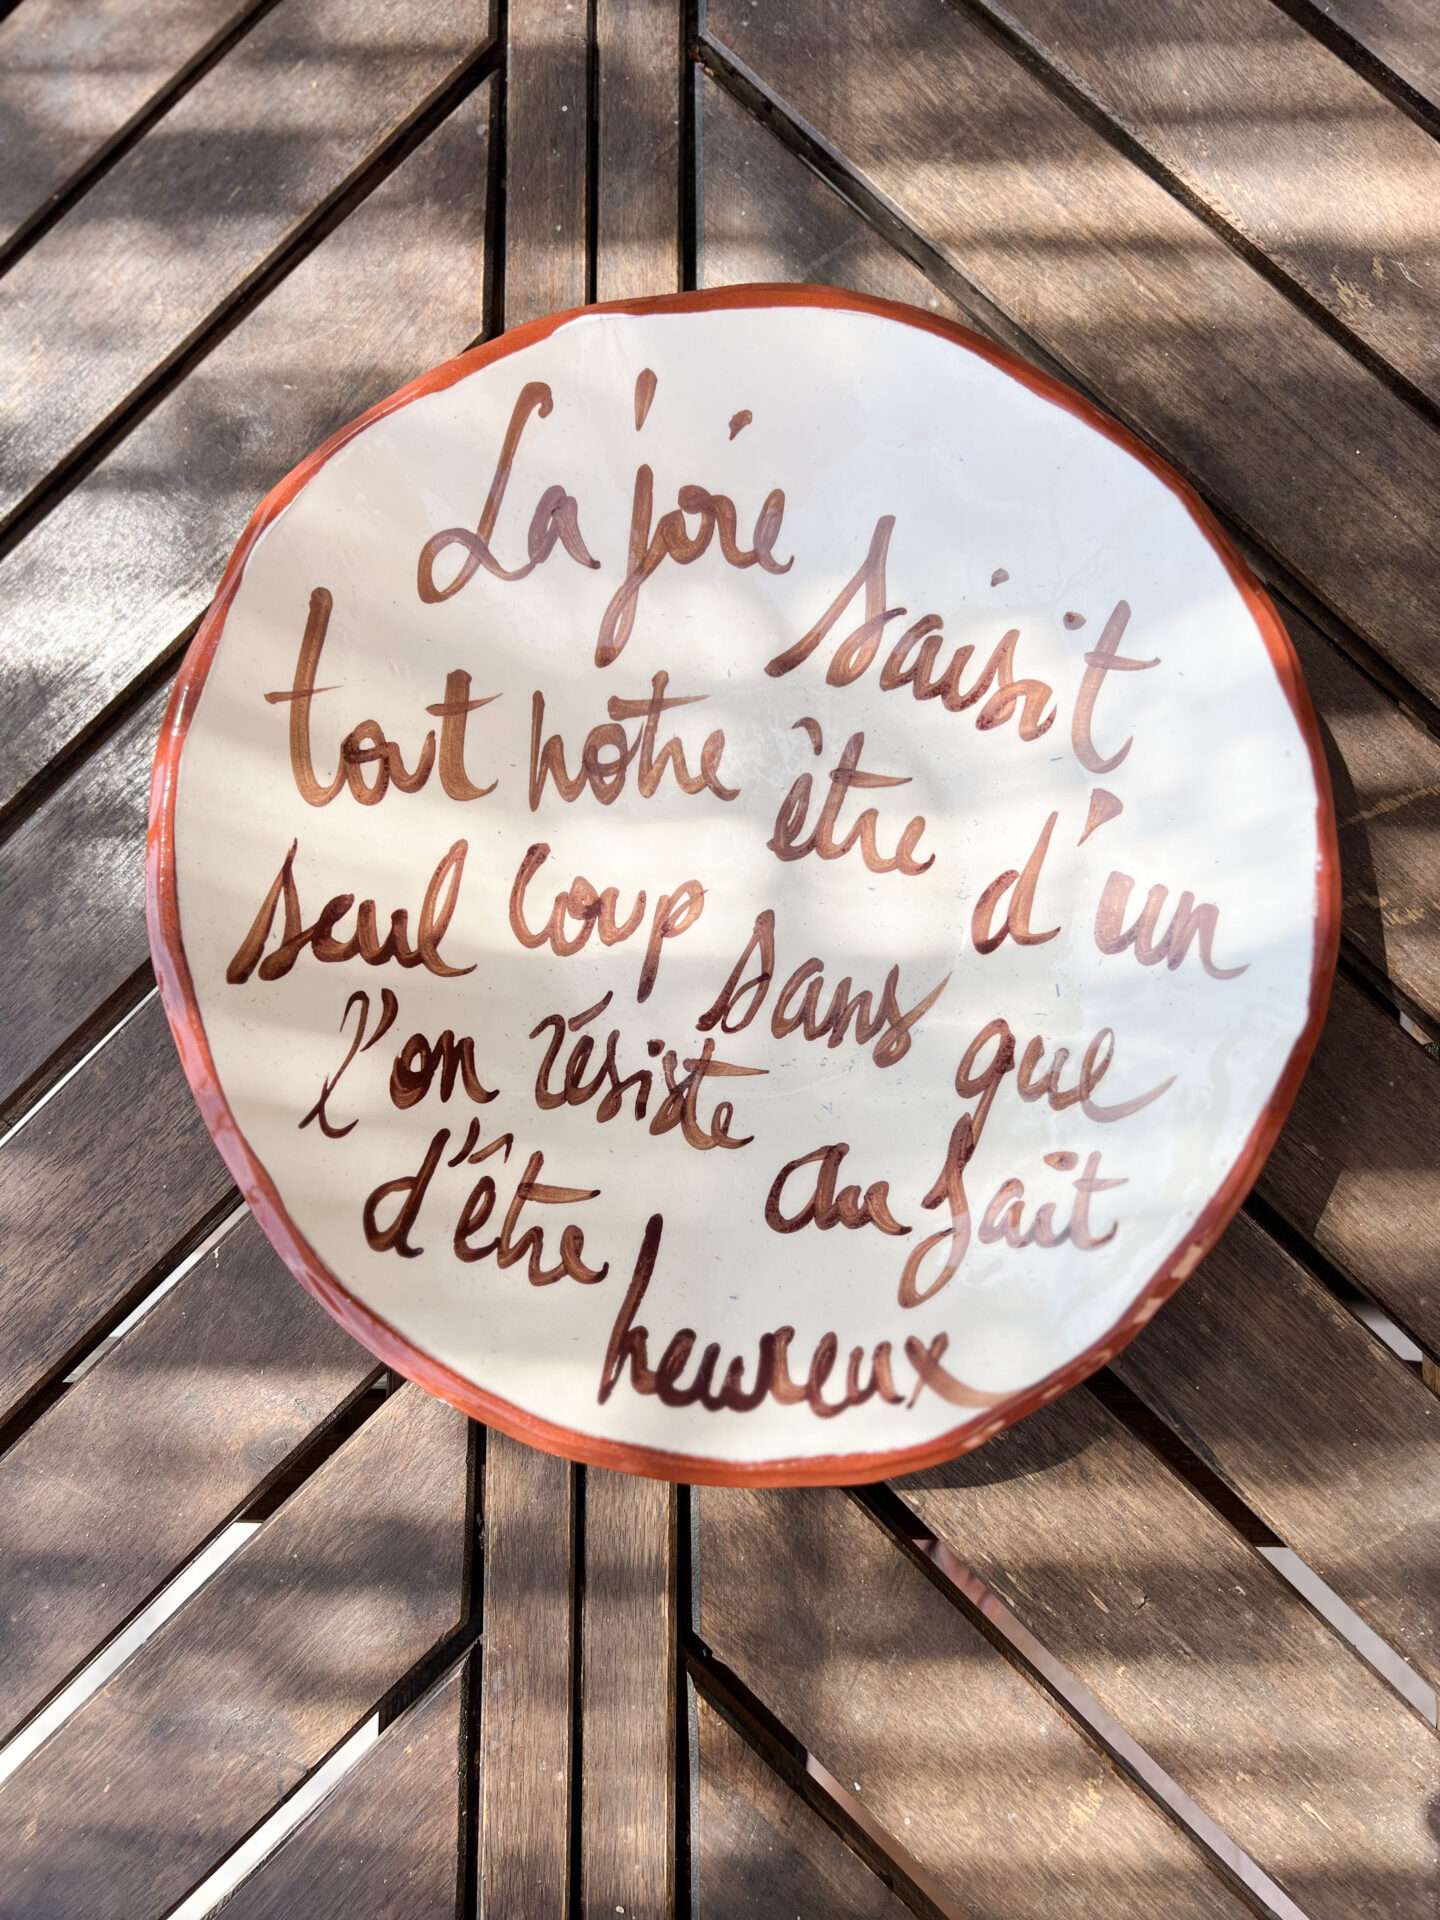 La joie saisit
tout notre être d'un
seul coup sans que
l'on résiste au fait
d'être heureux